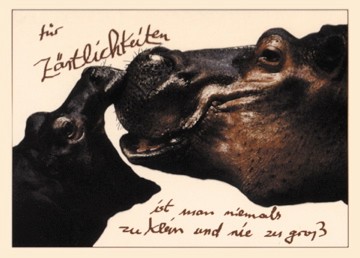 für
Zärtlichkeiten
ist man niemals
zu klein und nie zu groß